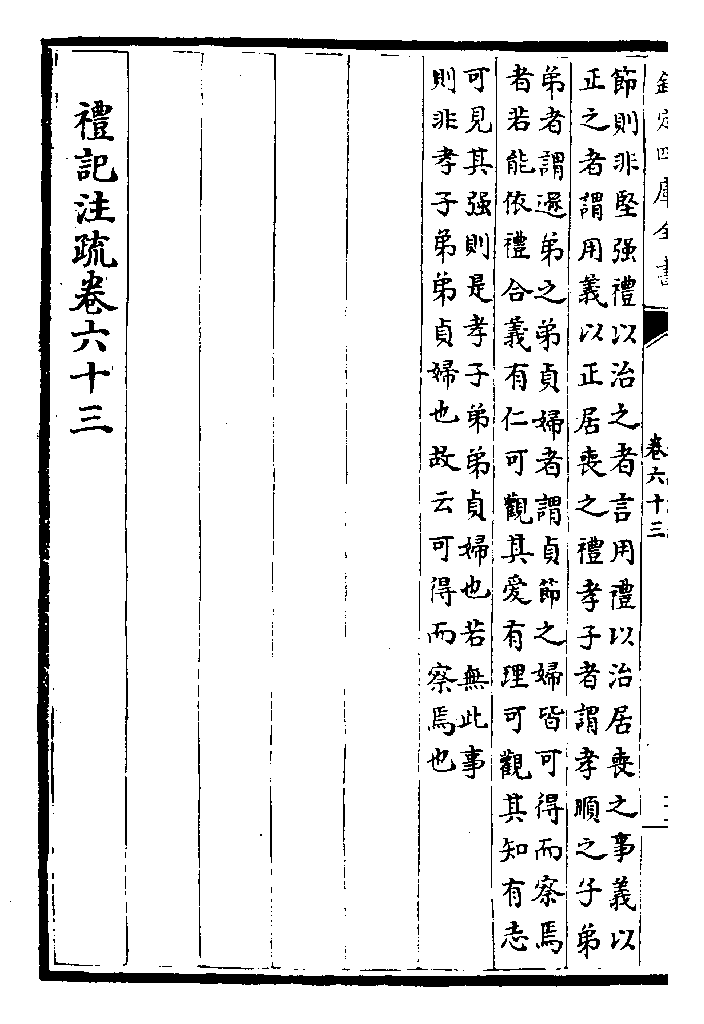 欽定四庫全書
卷六十三
節則非堅强禮以治之者言用禮以治居喪之事義以
正之者謂用義以正居喪之禮孝子者謂孝順之子弟
弟者謂遜弟之弟貞婦者謂貞節之婦皆可得而察焉
者若能依禮合義有仁可觀其愛有理可觀其知有志
可見其强則是孝子弟弟貞婦也若無此事
則非孝子弟弟貞婦也故云可得而察焉也
禮記注疏卷六十三